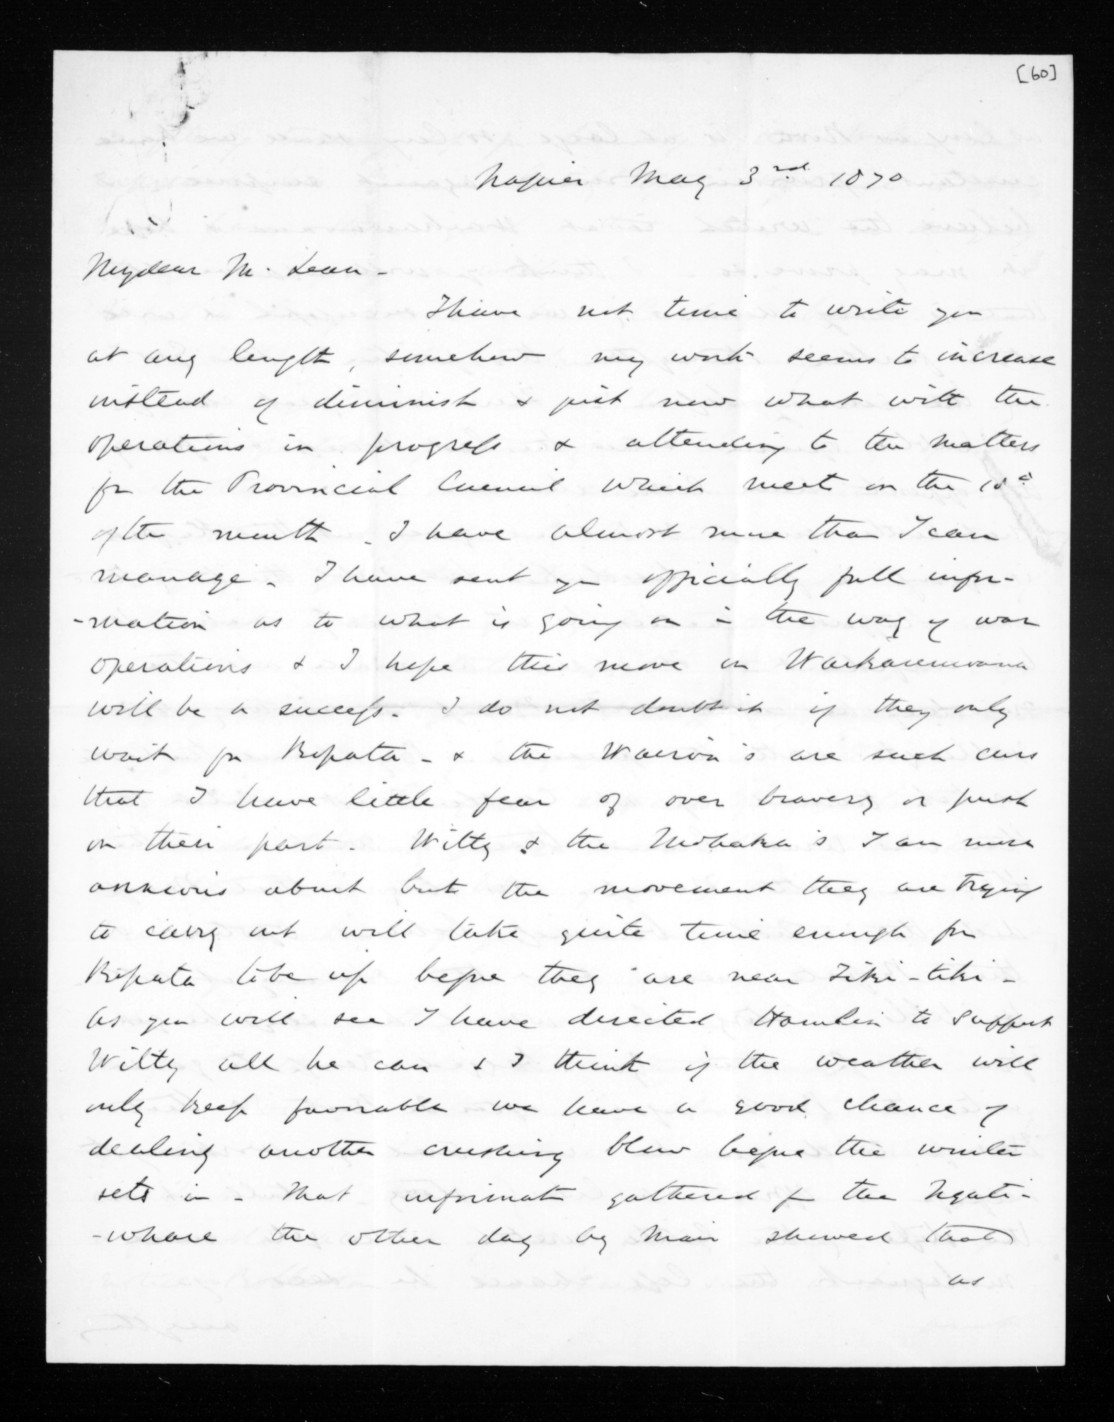 [60]
Napier May 3rd 1870
My dear McLean -
I have not time to write you
at any length, somehow my work seems to increase
instead of diminish & just now what with the
operations in progress & attending to the matters
for the Provincial Council which meets on the
of the month - I have almost more than I can
manage - I have sent you officially full infor-
-mation as to what is going on in the way of war
operations & I hope this move on Waikaremoana
will be a success - I do not doubt it if they only
wait for Ropata - & the Wairoa's are such curs
that I have little fear of over bravery or push
on their part - Witty & the Mohaka's I am more
anxious about but the movement they are trying
to carry out will take quite time enough for
Ropata to be up before they are near Tiki-tiki -
As you will see I have directed Hamlin to support
Witty all he can & I think if the weather will
only keep favorable we have a good chance of
dealing another crushing blow before the winter
sets in - That informatn gathered fr the Ngati-
-whare the other day by Mair shewed that
as